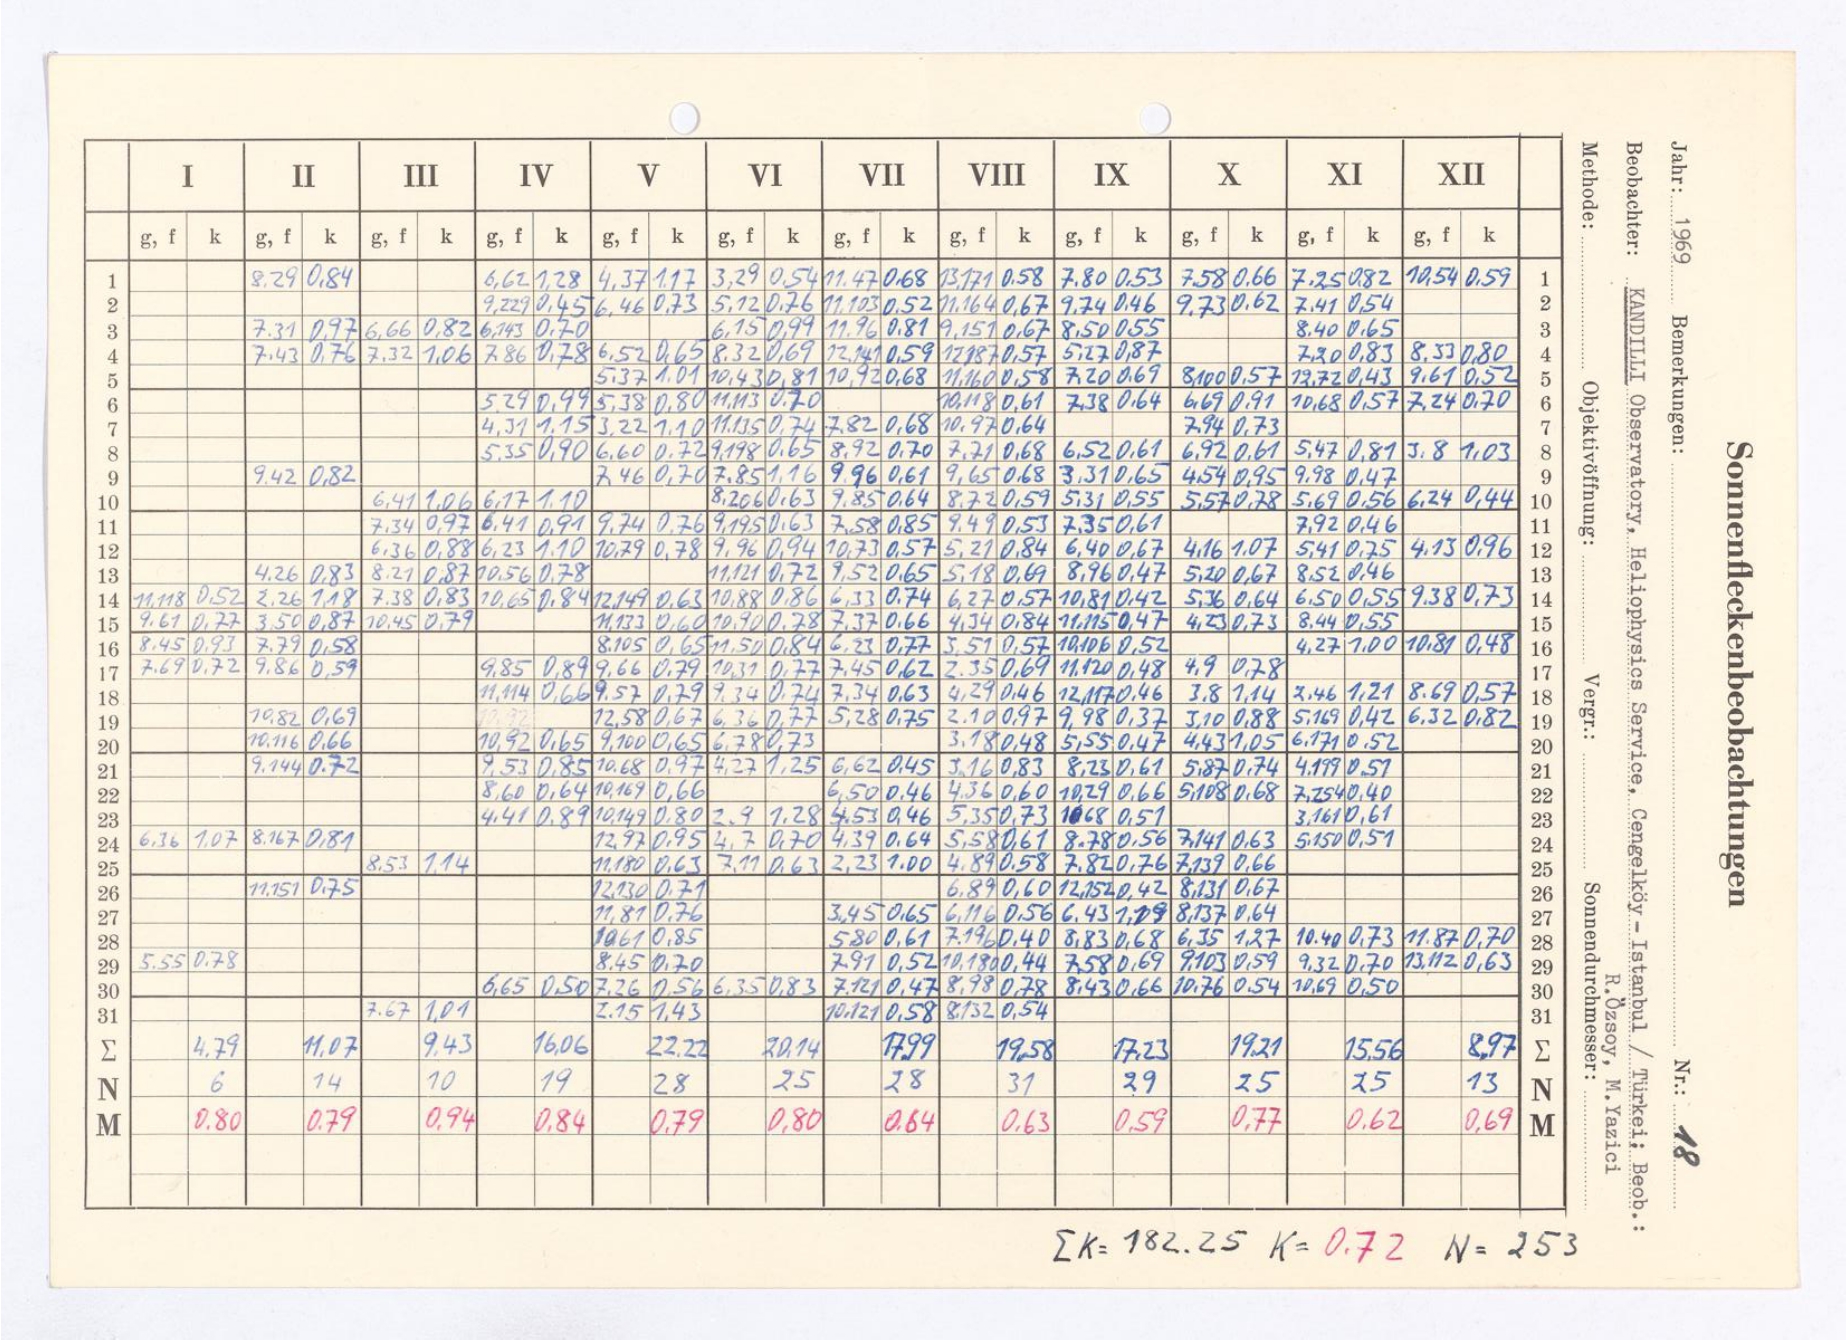 I II III IV V VI VII VIII IX X XI XII
g, f k g, f k g, f k g, f k g, f k g, f k g, f k g, f k g, f k g, f k g, f k g, f k
1 8.29 0,84 6,62 1,28 4,37 1.17 3,29 0,54 11.47 0,68 13,171 0.58 7.80 0,53 7.58 0,66 7.25 0,82 10,54 0,59 1
2 9,229 0,45 6,46 0,73 5,12 0,76 11,103 0,52 11,164 0,67 9,74 0,46 9,73 0,62 7.41 0,54 2
3 7.31 0,97 6,66 0,82 6,143 0,70 6,15 0,99 11,96 0,81 9,151 0,67 8,50 0,55 8.40 0,65 3
4 7.43 0,76 7.32 1,06 7,86 0,78 6,52 0,65 8,32 0,69 12,141 0,59 12,187 0,57 5,27 0,87 7,20 0,83 8,33 0,80 4
5 5.37 1.01 10,43 0,81 10,92 0,68 11,160 0,58 7,20 0,69 8,100 0,57 12,72 0,43 9,61 0,52 5
6 5.29 0,99 5,38 0,80 11,113 0,70 10,118 0,61 7,38 0,64 6,69 0,91 10,68 0,57 7,24 0,70 6
7 4,31 1,15 3,22 1,10 11,135 0,74 7,82 0,68 10,97 0,64 7,94 0,73 7
8 5,35 0,90 6,60 0,72 9,198 0,65 8,92 0,70 7,71 0,68 6,52 0,61 6,92 0,61 5,47 0,81 3.8 1,03 8
9 9.42 0,82 7,46 0,70 7,85 1,16 9,96 0,61 9,65 0,68 3,31 0,65 4,54 0,95 9,98 0,47 9
10 6,41 1,06 6,17 1.10 8,206 0,63 9,85 0,64 8,72 0,59 5,31 0,55 5,57 0,78 5,69 0,56 6,24 0,44 10
11 7,34 0,97 6,41 0,91 9,74 0,76 9,195 0,63 7,58 0,85 9.49 0,53 7,35 0,61 7,92 0,46 11
12 6,36 0,88 6,23 1.10 10,79 0,78 9,96 0,94 10,73 0,57 5,21 0,84 6,40 0,67 4,16 1.07 5,41 0,75 4.13 0,96 12
13 4.26 0,83 8.21 0,87 10,56 0,78 11,121 0,72 9,52 0,65 5,18 0,69 8,96 0,47 5,20 0,67 8,52 0,46 13
14 11,118 0,52 2.26 1,18 7.38 0,83 10,65 0,84 12,149 0,63 10,88 0,86 6,33 0,74 6,27 0,57 10,81 0,42 5,36 0,64 6,50 0,55 9.38 0,73 14
15 9.61 0,77 3,50 0,87 10,45 0,79 11,133 0,60 10,90 0,78 7,37 0,66 4,34 0,84 11,115 0,47 4,23 0,73 8,44 0,55 15
16 8.45 0,93 7.79 0,58 8.105 0,65 11,50 0,84 6,23 0,77 3,51 0,57 10,106 0,52 4,27 1,00 10,81 0,48 16
17 7.69 0,72 9,86 0,59 9,85 0,89 9,66 0,79 10,31 0,77 7,45 0,62 2.35 0,69 11,120 0,48 4,9 0,78 17
18 11,114 0,66 9,57 0,79 9,34 0,74 7,34 0,63 4,29 0,46 12,117 0,46 3.8 1,14 2.46 1,21 8.69 0,57 18
19 10,82 0,69 12,58 0,67 6,36 0,77 5,28 0,75 2.10 0,97 9,98 0,37 3,10 0,88 5,169 0,42 6.32 0,82 19
20 10,116 0,66 10,92 0,65 9,100 0,65 6,78 0,73 3,18 0,48 5,55 0,47 4,43 1,05 6,171 0,52 20
21 9,144 0.72 9,53 0,85 10.68 0,97 4,27 1,25 6,62 0,45 3,16 0,83 8,23 0,61 5,87 0,74 4,199 0,51 21
22 8,60 0,64 10,169 0,66 6,50 0,46 4.36 0,60 10,29 0,66 5,108 0,68 7,254 0,40 22
23 4.41 0,89 10,149 0,80 2.9 1.28 4.53 0,46 5,35 0,73 0,51 3,161 0,61 23
24 6,36 1,07 8.167 0,81 12,97 0,95 4,7 0,70 4,39 0,64 5,58 0,61 8.78 0,56 7,141 0,63 5,150 0,51 24
25 8,53 1,14 11,180 0,63 7,11 0,63 2,23 1.00 4.89 0,58 7,82 0,76 7,139 0,66 25
26 11,151 0,75 12,130 0,71 6,89 0,60 12,152 0,42 8,131 0,67 26
27 11,81 0,76 3,45 0,65 6,116 0,56 6,43 8,137 0,64 27
28 10,61 0,85 5,80 0,61 7,196 0,40 8,83 0,68 6,35 1,27 10.40 0,73 11.87 0,70 28
29 5.55 0.78 8.45 0,70 7,91 0,52 10,180 0,44 7,58 0,69 9,103 0,59 9,32 0,70 13,112 0,63 29
30 6,65 0,50 7,26 0,56 6,35 0,83 7,121 0,47 8,98 0,78 8,43 0,66 10,76 0,54 10,69 0,50 30
31 7.67 1,01 2.15 1,43 10,121 0,58 8,132 0,54 31
Σ 4,79 11,07 9,43 16,06 22,22 20,14 17,99 19,58 17,23 19,21 15,56 8,97 Σ
N 6 14 10 19 28 25 28 31 29 25 25 13 N
M 0.80 0.79 0,94 0,84 0,79 0,80 0.64 0.63 0,59 0,77 0.62 0,69 M
ΣK= 182.25 K= 0.72 N= 253
Sonnenfleckenbeobachtungen
Jahr: 1969 Bemerkungen: Nr.: 18
Beobachter: KANDILLI Observatory, Heliophysics Service, Cengelköy-Istanbul / Türkei; Beob.:
R.Özsoy, M.Yazici
Methode: Objektivöffnung: Vergr.: Sonnendurchmesser: